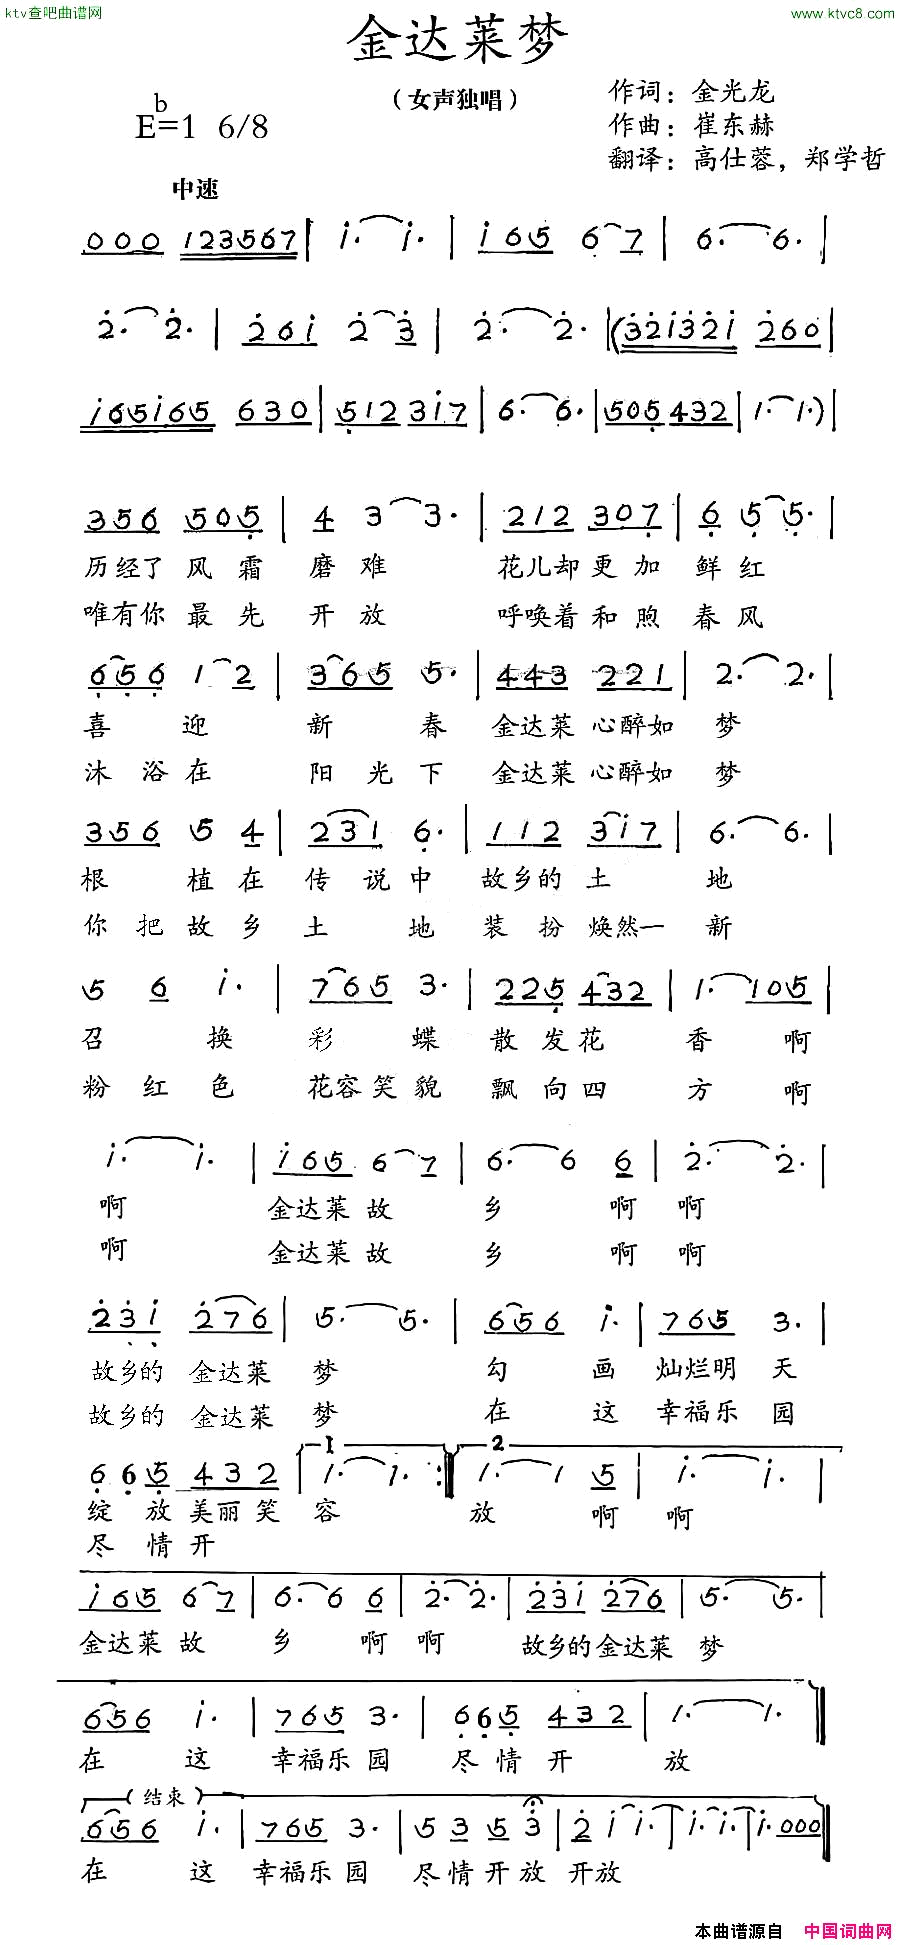 ktv查吧曲谱网
www.ktvc8.com
金达莱梦
（女声独唱）
作词：金光龙
作曲：崔东赫
翻译：高仕蓉，郑学哲
bE=1 6/8
中速
000 123567 | i. i. | i65 6 7 | 6. 6. |
2. 2. | 26i 2 3 | 2. 2. | (32i32i 260 |
i65i65 630 | 512 3i7 | 6. 6. | 505 432 | 1. 1.) |
356 505 | 4 3 3. | 212 307 | 6 5 5. |
历经了 风霜 磨难 花儿却更加 鲜红
唯有你 最先 开放 呼唤着和煦 春风
656 1 2 | 365 5. | 443 221 | 2. 2. |
喜 迎 新 春 金达莱 心醉如 梦
沐浴在 阳光下 金达莱 心醉如 梦
356 5 4 | 231 6. | 112 3i7 | 6. 6. |
根 植在 传说中 故乡的土 地
你把故乡 土 地 装扮焕然一 新
5 6 i. | 765 3. | 225 432 | 1. 105 |
召 换 彩 蝶 散发花 香 啊
粉红色 花容笑貌 飘向四 方 啊
i. i. | i65 6 7 | 6. 6 6 | 2. 2. |
啊 金达莱故 乡 啊 啊
啊 金达莱故 乡 啊 啊
23i 276 | 5. 5. | 656 i. | 765 3. |
故乡的 金达莱 梦 勾 画 灿烂明 天
故乡的 金达莱 梦 在 这 幸福乐 园
1 2
6 6 5 432 | 1. 1. :| 1. 1 5 | i. i. |
绽 放美丽笑 容 放 啊 啊
尽 情开
i65 6 7 | 6. 6 6 | 2. 2. | 23i 276 | 5. 5. |
金达莱故 乡 啊 啊 故乡的金达莱 梦
656 i. | 765 3. | 665 432 | 1. 1. ||
在 这 幸福乐园 尽情开 放
结束
656 i. | 765 3. | 5 3 5 3 | 2 i i. | i. i. | i. 000 ||
在 这 幸福乐园 尽情开放 开放
本曲谱源自 中国词曲网